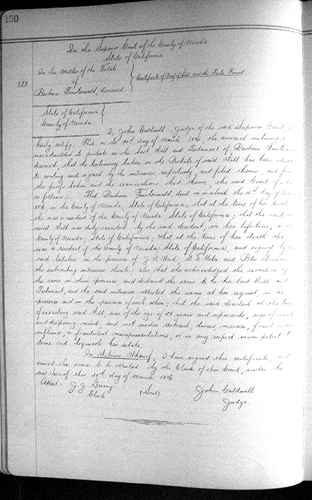 150
In the Superior Court of the County of Nevada
State of California
In the Matter of the Estate
of
Barbara Finterwald, deceased
Certificate of Proof of Will and the Facts Found
State of California
County of Nevada
I, John Caldwell, Judge of the said Superior Court, do
hereby certify: That on the day of March 1896, the annexed instrument
was admitted to probate as the last Will and Testament of Barbara
deceased, that the testimony taken on the Probate of said Will has been reduced
to writing and signed by the witnesses respectively, and filed herein; and from
the proofs taken and the examination had therein, the said Court finds
as follows: That Barbara Finterwald died on or about the 16th day of
1896 in the County of Nevada, State of California, that at the time of her death
she was a resident of the County of Nevada State of California; that the
said Will was duly executed by the said decedent, in her lifetime, in the
County of Nevada, State of California; that at the time of her death she
was a resident of the County of Nevada, State of California, and signed by the
said testatrix in the presence of and
the subscribing witnesses thereto; also that she acknowledged the execution of
the same in their presence and declared the same to be her last Will and
Testament, and the said witnesses attested the same at her request in her
presence and in the presence of each other; that the said decedent at the time
of executing said Will, was of the age of years and upwards, was of sound
and disposing mind, and not under restraint, duress, menace, fraud, undue
influence, or fraudulent misrepresentations, or in any respect incompetent to
devise and bequeath her estate.
In Witness Whereof, I have signed this certificate, and
caused the same to be attested by the Clerk of this Court, under the
seal thereof this day of March 1896
Attest: (Seal) John Caldwell
Clerk Judge.